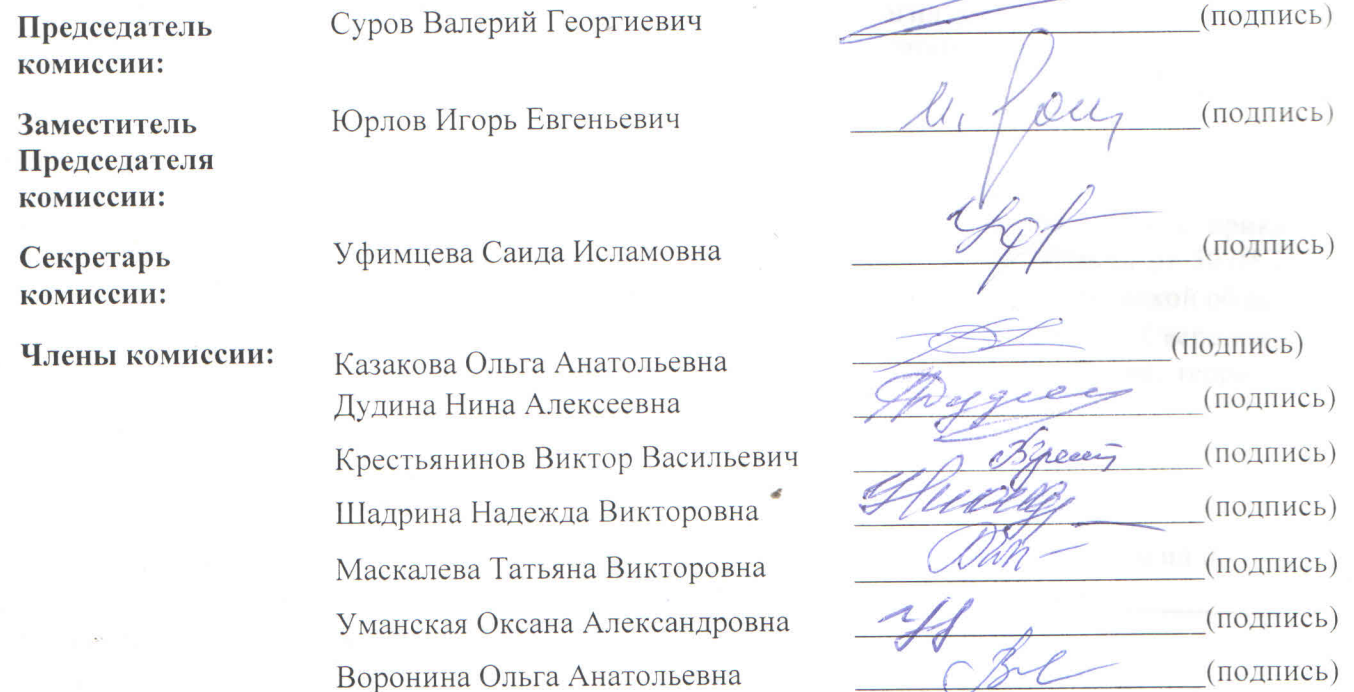 Председатель Суров Валерий Георгиевич (подпись)
комиссии:
Заместитель Юрлов Игорь Евгеньевич (подпись)
Председателя
комиссии:
Секретарь Уфимцева Саида Исламовна (подпись)
комиссии:
Члены комиссии: Казакова Ольга Анатольевна (подпись)
Дудина Нина Алексеевна (подпись)
Крестьянинов Виктор Васильевич (подпись)
Шадрина Надежда Викторовна (подпись)
Маскалева Татьяна Викторовна (подпись)
Уманская Оксана Александровна (подпись)
Воронина Ольга Анатольевна (подпись)